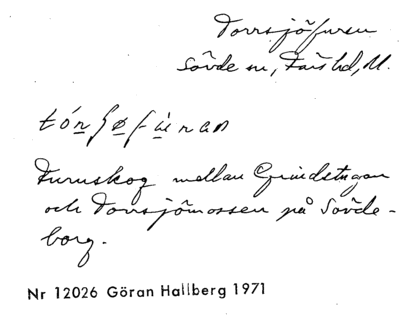 Torrsjöfuran
Sövde sn, Färs hd, M.
Furuskog mellan Grindstugan
och Torrsjömossen på Sövde-
borg.
Nr 12026 Göran Hallberg 1971